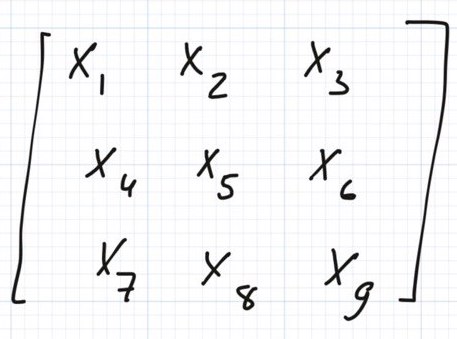 X₁ X₂ X₃
X₄ X₅ X₆
X₇ X₈ X₉